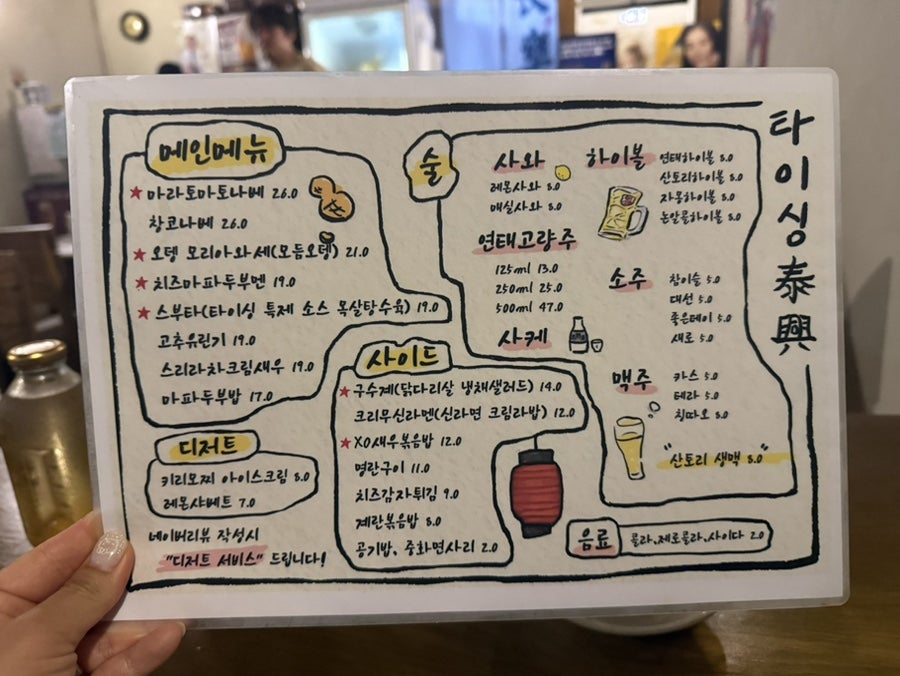 타이싱泰興
메인메뉴
★ 마라토마토나베 26.0
창코나베 26.0
★ 오뎅 모리아와세(모듬오뎅) 21.0
★ 치즈마파두부멘 19.0
★ 스부타(타이싱 특제 소스 목살탕수육) 19.0
고추유린기 19.0
스리라차크림새우 19.0
마파두부밥 17.0
디저트
키리모찌 아이스크림 8.0
레몬샤베트 7.0
네이버리뷰 작성시
"디저트 서비스" 드립니다!
사이드
★ 구수계(닭다리살 냉채샐러드) 14.0
크리무신라멘(신라면 크림라밥) 12.0
★ XO새우볶음밥 12.0
명란구이 11.0
치즈감자튀김 9.0
계란볶음밥 8.0
공기밥, 중화면사리 2.0
술
사와
레몬사와 8.0
매실사와 8.0
연태고량주
125ml 13.0
250ml 25.0
500ml 47.0
사케
하이볼
연태하이볼 8.0
산토리하이볼 8.0
자몽하이볼 8.0
논알콜하이볼 8.0
소주
참이슬 5.0
대선 5.0
좋은데이 5.0
새로 5.0
맥주
카스 5.0
테라 5.0
칭따오 8.0
"산토리 생맥 8.0"
음료
콜라,제로콜라,사이다 2.0